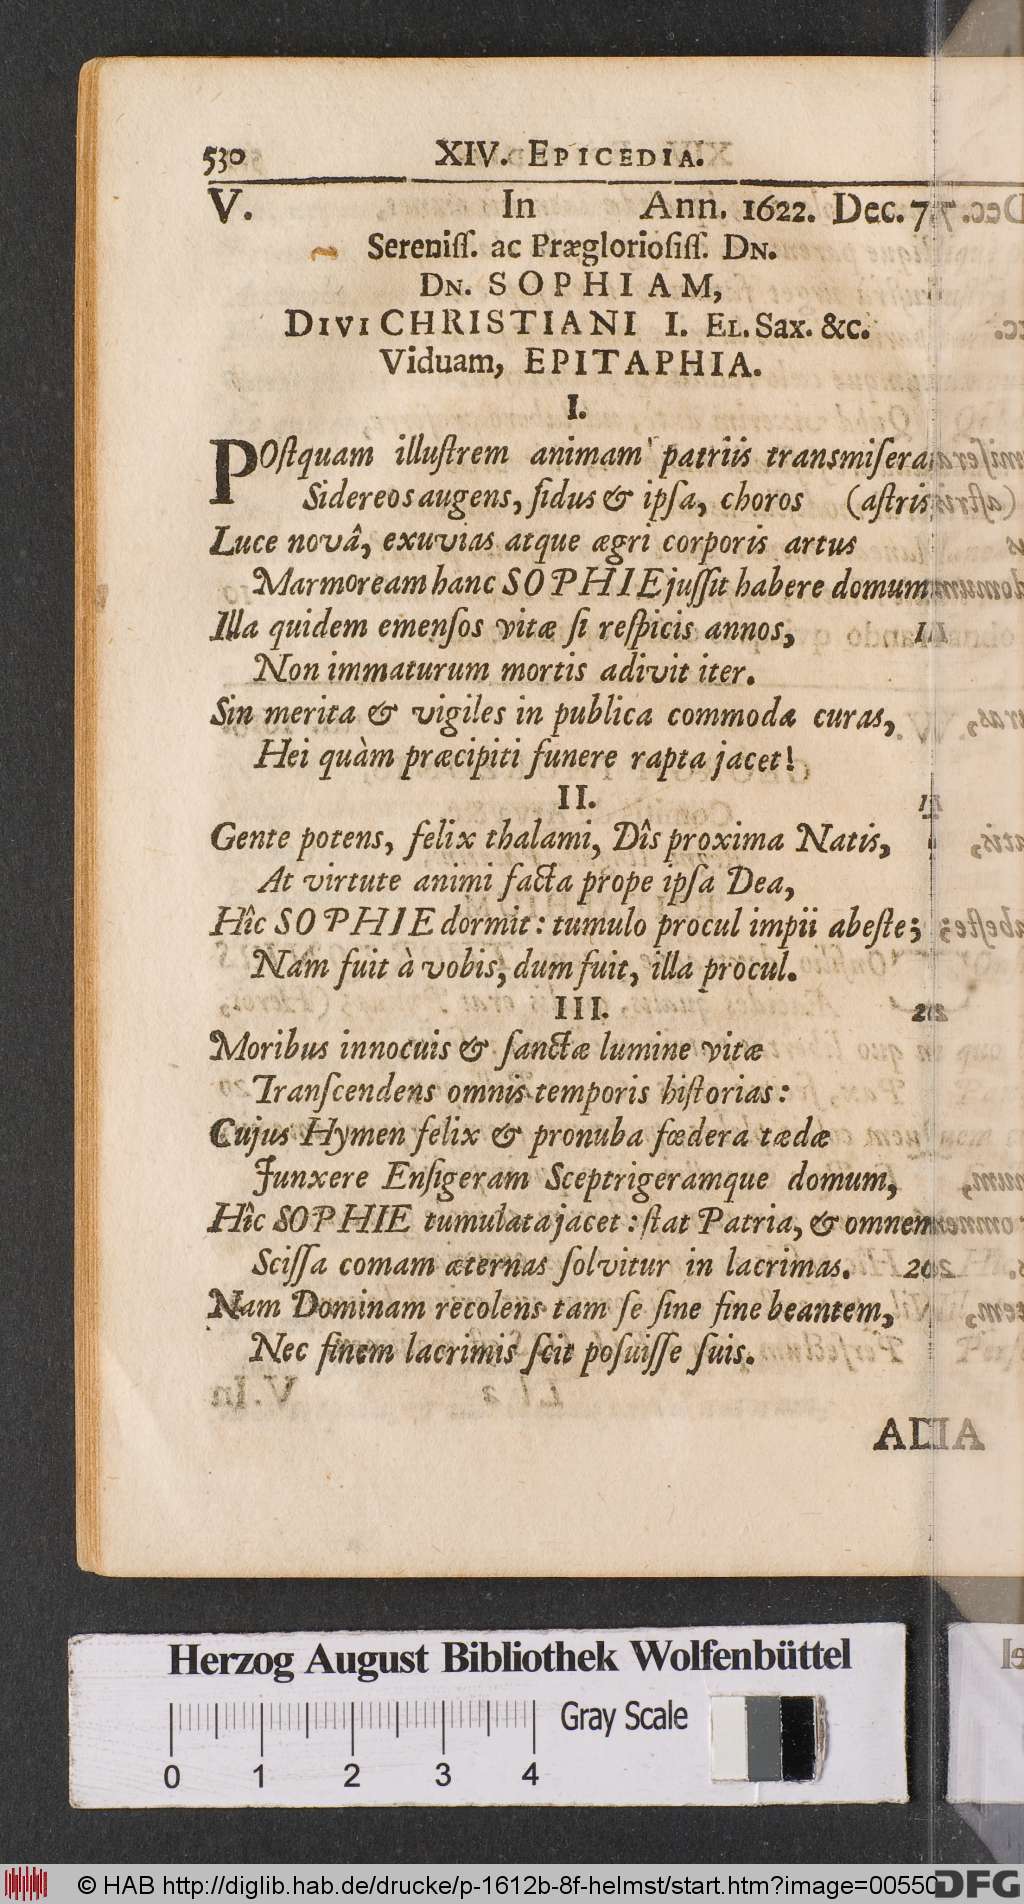 530 XIV. EPICEDIA.
V. In Ann. 1622. Dec. 7.
Sereniſſ. ac Prægloriosiſſ. DN.
DN. SOPHIAM,
DIVI CHRISTIANI I. EL. Sax. &c.
Viduam, EPITAPHIA.
I.
POſtquam illuſtrem animam patriis transmiſera
Sidereos augens, ſidus & ipſa, choros (aſtris
Luce novâ, exuvias atque ægri corporis artus
Marmoream hanc SOPHIE juſſit habere domum
Illa quidem emenſos vitæ ſi reſpicis annos,
Non immaturum mortis adivit iter.
Sin merita & vigiles in publica commoda curas,
Hei quàm præcipiti funere rapta jacet!
II.
Gente potens, felix thalami, Dîs proxima Natis,
At virtute animi facta prope ipſa Dea,
Hîc SOPHIE dormit: tumulo procul impii abeſte;
Nam fuit à vobis, dum fuit, illa procul.
III.
Moribus innocuis & ſanctæ lumine vitæ
Tranſcendens omnis temporis hiſtorias:
Cujus Hymen felix & pronuba fœdera tædæ
Junxere Enſigeram Sceptrigeramque domum,
Hîc SOPHIE tumulata jacet: ſtat Patria, & omnem
Sciſſa comam æternas ſolvitur in lacrimas. 20
Nam Dominam recolens tam ſe ſine fine beantem,
Nec finem lacrimis ſcit poſuiſſe ſuis.
Herzog August Bibliothek Wolfenbüttel
Gray Scale
0 1 2 3 4
© HAB http://diglib.hab.de/drucke/p-1612b-8f-helmst/start.htm?image=00550
DFG